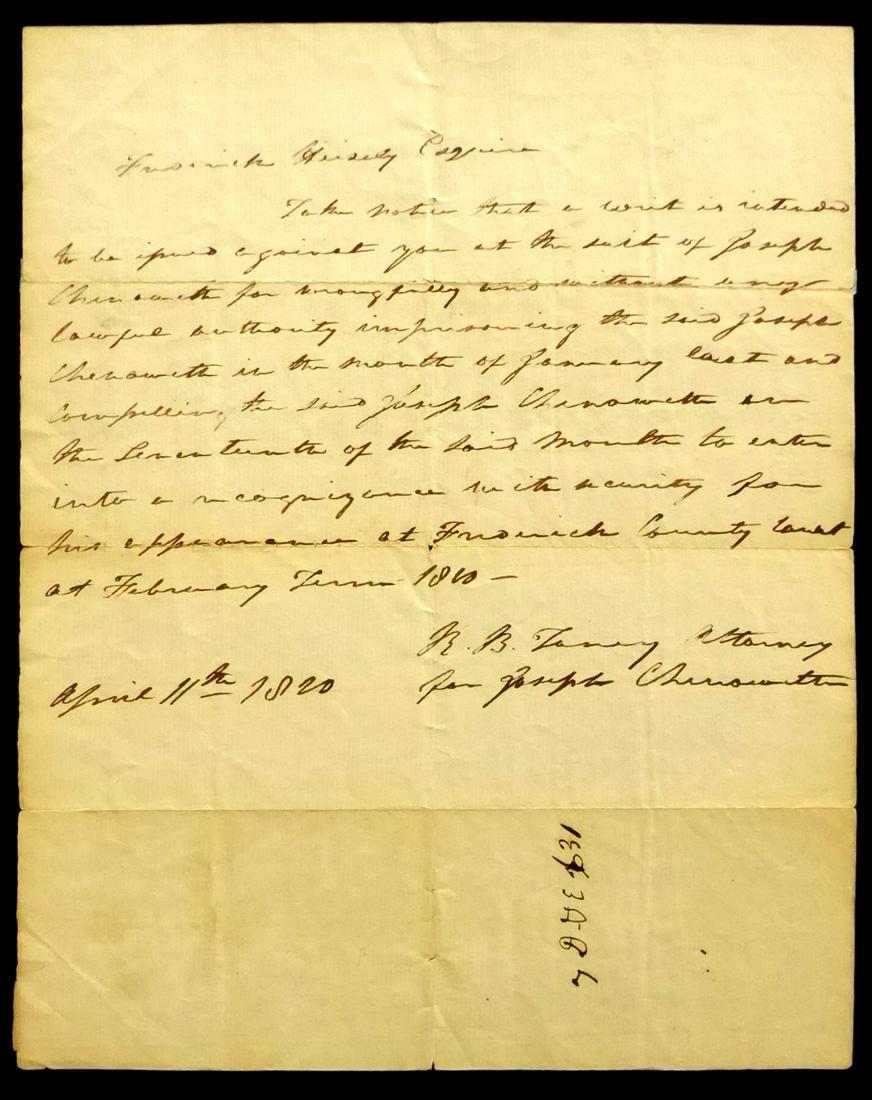 Frederick Heisely Esquire
Take notice that a writ is intended
to be issued against you at the suit of Joseph
Chenoweth for wrongfully and without any
lawful authority imprisoning the said Joseph
Chenoweth in the month of January last and
compelling the said Joseph Chenoweth on
the Seventeenth of the said Month to enter
into a recognizance with security for
his appearance at Frederick County Court
at February Term 1810 —
R. B. Taney Attorney
April 11th 1810
for Joseph Chenoweth